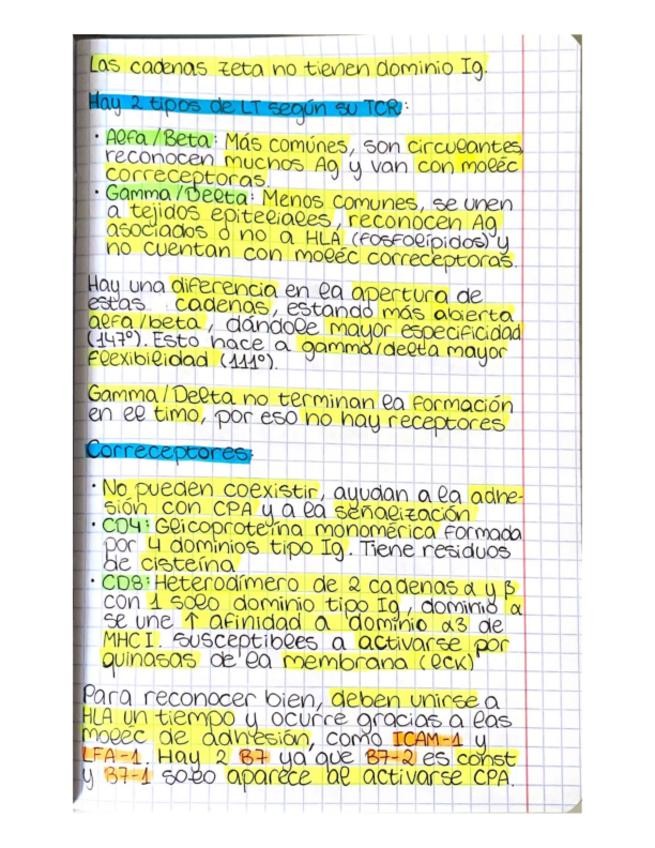 Las cadenas zeta no tienen dominio Ig.
Hay 2 tipos de LT según su TCR:
• Alfa/Beta: Más comúnes, son circulantes,
reconocen muchos Ag y van con moléc
correceptoras.
• Gamma/Delta: Menos comunes, se unen
a tejidos epiteliales, reconocen Ag
asociados o no a HLA (fosfolípidos) y
no cuentan con moléc correceptoras.
Hay una diferencia en la apertura de
estas cadenas, estando más abierta
alfa/beta, dándole mayor especificidad
(147º). Esto hace a gamma/delta mayor
flexibilidad (111º).
Gamma/Delta no terminan la formación
en el timo, por eso no hay receptores
Correceptores:
• No pueden coexistir, ayudan a la adhe-
sión con CPA y a la señalización
• CD4: Glicoproteína monomérica formada
por 4 dominios tipo Ig. Tiene residuos
de cisteína
• CD8: Heterodímero de 2 cadenas α y β
con 1 solo dominio tipo Ig, dominio α
se une ↑ afinidad a dominio α3 de
MHC I. susceptibles a activarse por
quinasas de la membrana (lck)
Para reconocer bien, deben unirse a
HLA un tiempo y ocurre gracias a las
moléc de adhesión, como ICAM-1 y
LFA-1. Hay 2 B7 ya que B7-2 es const
y B7-1 solo aparece al activarse CPA.